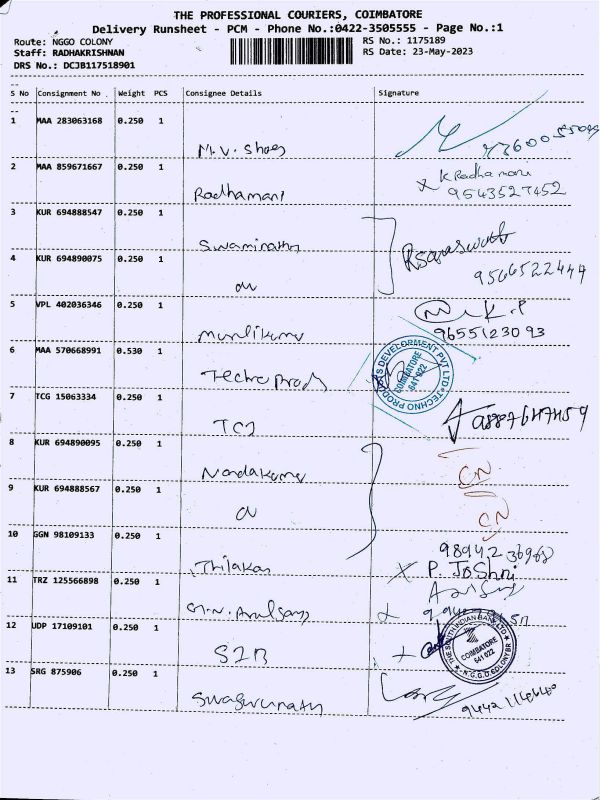 THE PROFESSIONAL COURIERS, COIMBATORE
Delivery Runsheet - PCM - Phone No.:0422-3505555 - Page No.:1
Route: NGGO COLONY
Staff: RADHAKRISHNAN
DRS No.: DCJB117518901
RS No.: 1175189
RS Date: 23-May-2023
S No Consignment No Weight PCS Consignee Details Signature
1 MAA 283063168 0.250 1
M.V. Shoes
2 MAA 859671667 0.250 1
Radhamani K Radhamani
9543527452
3 KUR 694888547 0.250 1
Swaminathan
4 KUR 694890075 0.250 1
9566522444
5 VPL 402036346 0.250 1
K.P
9655123093
6 MAA 570668991 0.530 1
TECHNO PRODUCTS DEVELOPMENT PVT LTD
COIMBATORE
641 022
7 TCG 15063334 0.250 1
8 KUR 694890095 0.250 1
CN
9 KUR 694888567 0.250 1
CN
10 GGN 98109133 0.250 1
P. JoShni
11 TRZ 125566898 0.250 1
12 UDP 17109101 0.250 1
SIB
THE SOUTH INDIAN BANK LTD
COIMBATORE
641 022
N.G.G.O COLONY BR
13 SRG 875906 0.250 1